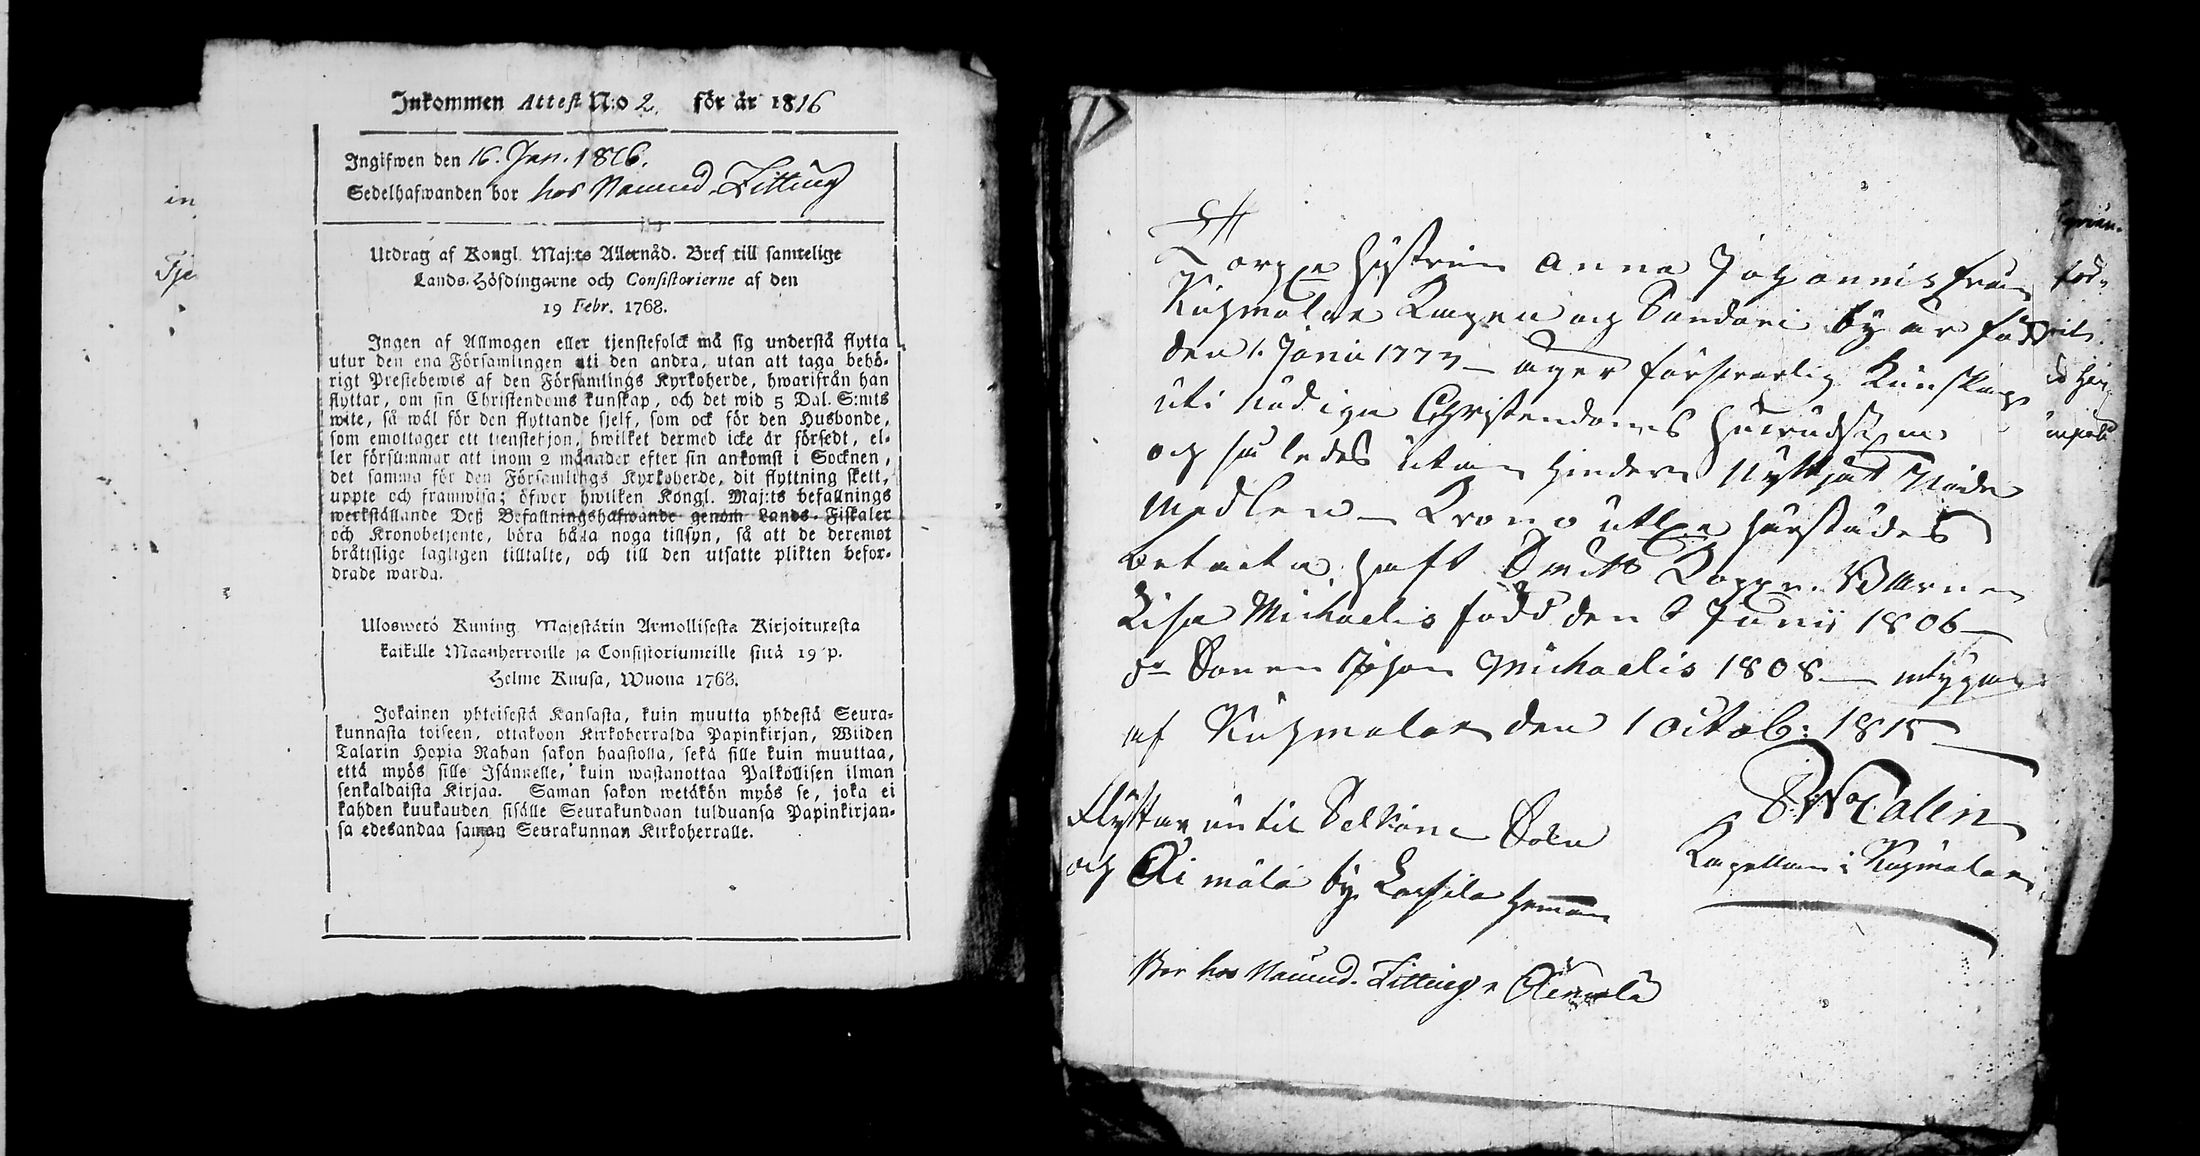 in
Fje
Inkommen Attest N:o 2. för år 1816
Ingifwen den 16. Jan. 1816.
Sedelhafwanden bor hos Naumd. Zitting
Utdrag af Kongl. Maj:ts Allernåd. Bref till samtelige
Lands-Höfdingarne och Consistorierne af den
19 Febr. 1768.
Ingen af Allmogen eller tjenstefolck må sig understå flytta
utur den ena Församlingen uti den andra, utan att taga behö-
rigt Prestebewis af den Församlings Kyrkoherde, hwarifrån han
flyttar, om sin Christendoms kunskap, och det wid 5 Dal. S:mts
wite, så wäl för den flyttande sjelf, som ock för den Husbonde,
som emottager ett tienstehjon, hwilket dermed icke är försedt, el-
ler försummar att inom 2 månader efter sin ankomst i Socknen,
det samma för den Församlings Kyrkoherde, dit flyttning skett,
uppte och framwisa; öfwer hwilken Kongl. Maj:ts befallnings
werkställande Deß Befallningshafwande genom Lands-Fiskaler
och Kronobetjente, böra hålla noga tillsyn, så att de deremot
bråtislige lagligen tilltalte, och till den utsatte plikten befor-
drade warda.
Uloswetö Kuning. Majestätin Armollisesta Kirjoituxesta
kaikille Maanherroille ja Consistoriumeille siitä 19 p.
Helme Kuusa, Wuona 1768.
Jokainen yhteisestä Kansasta, kuin muutta yhdestä Seura-
kunnasta toiseen, ottakoon Kirkoherralda Papinkirjan, Wiiden
Talarin Hopia Rahan sakon haastolla, sekä sille kuin muuttaa,
että myös sille Isännelle, kuin wastanottaa Palkollisen ilman
senkaldaista Kirjaa. Saman sakon wetäkön myös se, joka ei
kahden kuukauden sisälle Seurakundaan tulduansa Papinkirjan-
sa edesandaa saman Seurakunnan Kirkoherralle.
Torpe Hystrun Anna Johannis från
Kuhmalax Kapen och Sondari by är född
den 1. Junii 1777 – äger försvarlig Kunskap
uti nödiga Christendomes
och således utan hinder Nyttjat Nåde
Medlen – härstädes
haft Barnen
Lisa Michaelis född den 6 Junii 1806 –
Sonen Johan Michaelis 1808 – intygar
af Kuhmalax den 1 Octob: 1815
Flyttar nu til Selkäne Sokn
och Äimälä by Lassila
Walin
Kapellan i Kuhmalax
Bor hos Naumd. Zitting i Äimälä